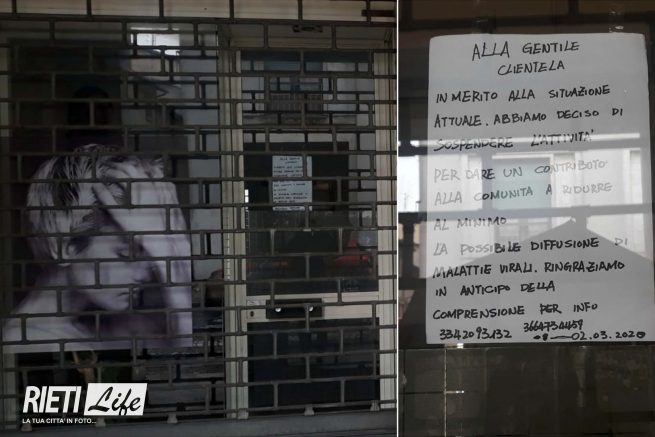 ALLA GENTILE
CLIENTELA
IN MERITO ALLA SITUAZIONE
ATTUALE. ABBIAMO DECISO DI
SOSPENDERE L'ATTIVITA'
PER DARE UN CONTRIBUTO
ALLA COMUNITA A RIDURRE
AL MINIMO
LA POSSIBILE DIFFUSIONE DI
MALATTIE VIRALI. RINGRAZIAMO
IN ANTICIPO DELLA
COMPRENSIONE PER INFO
02.03.2020
RIETI Life
LA TUA CITTA' IN FOTO...